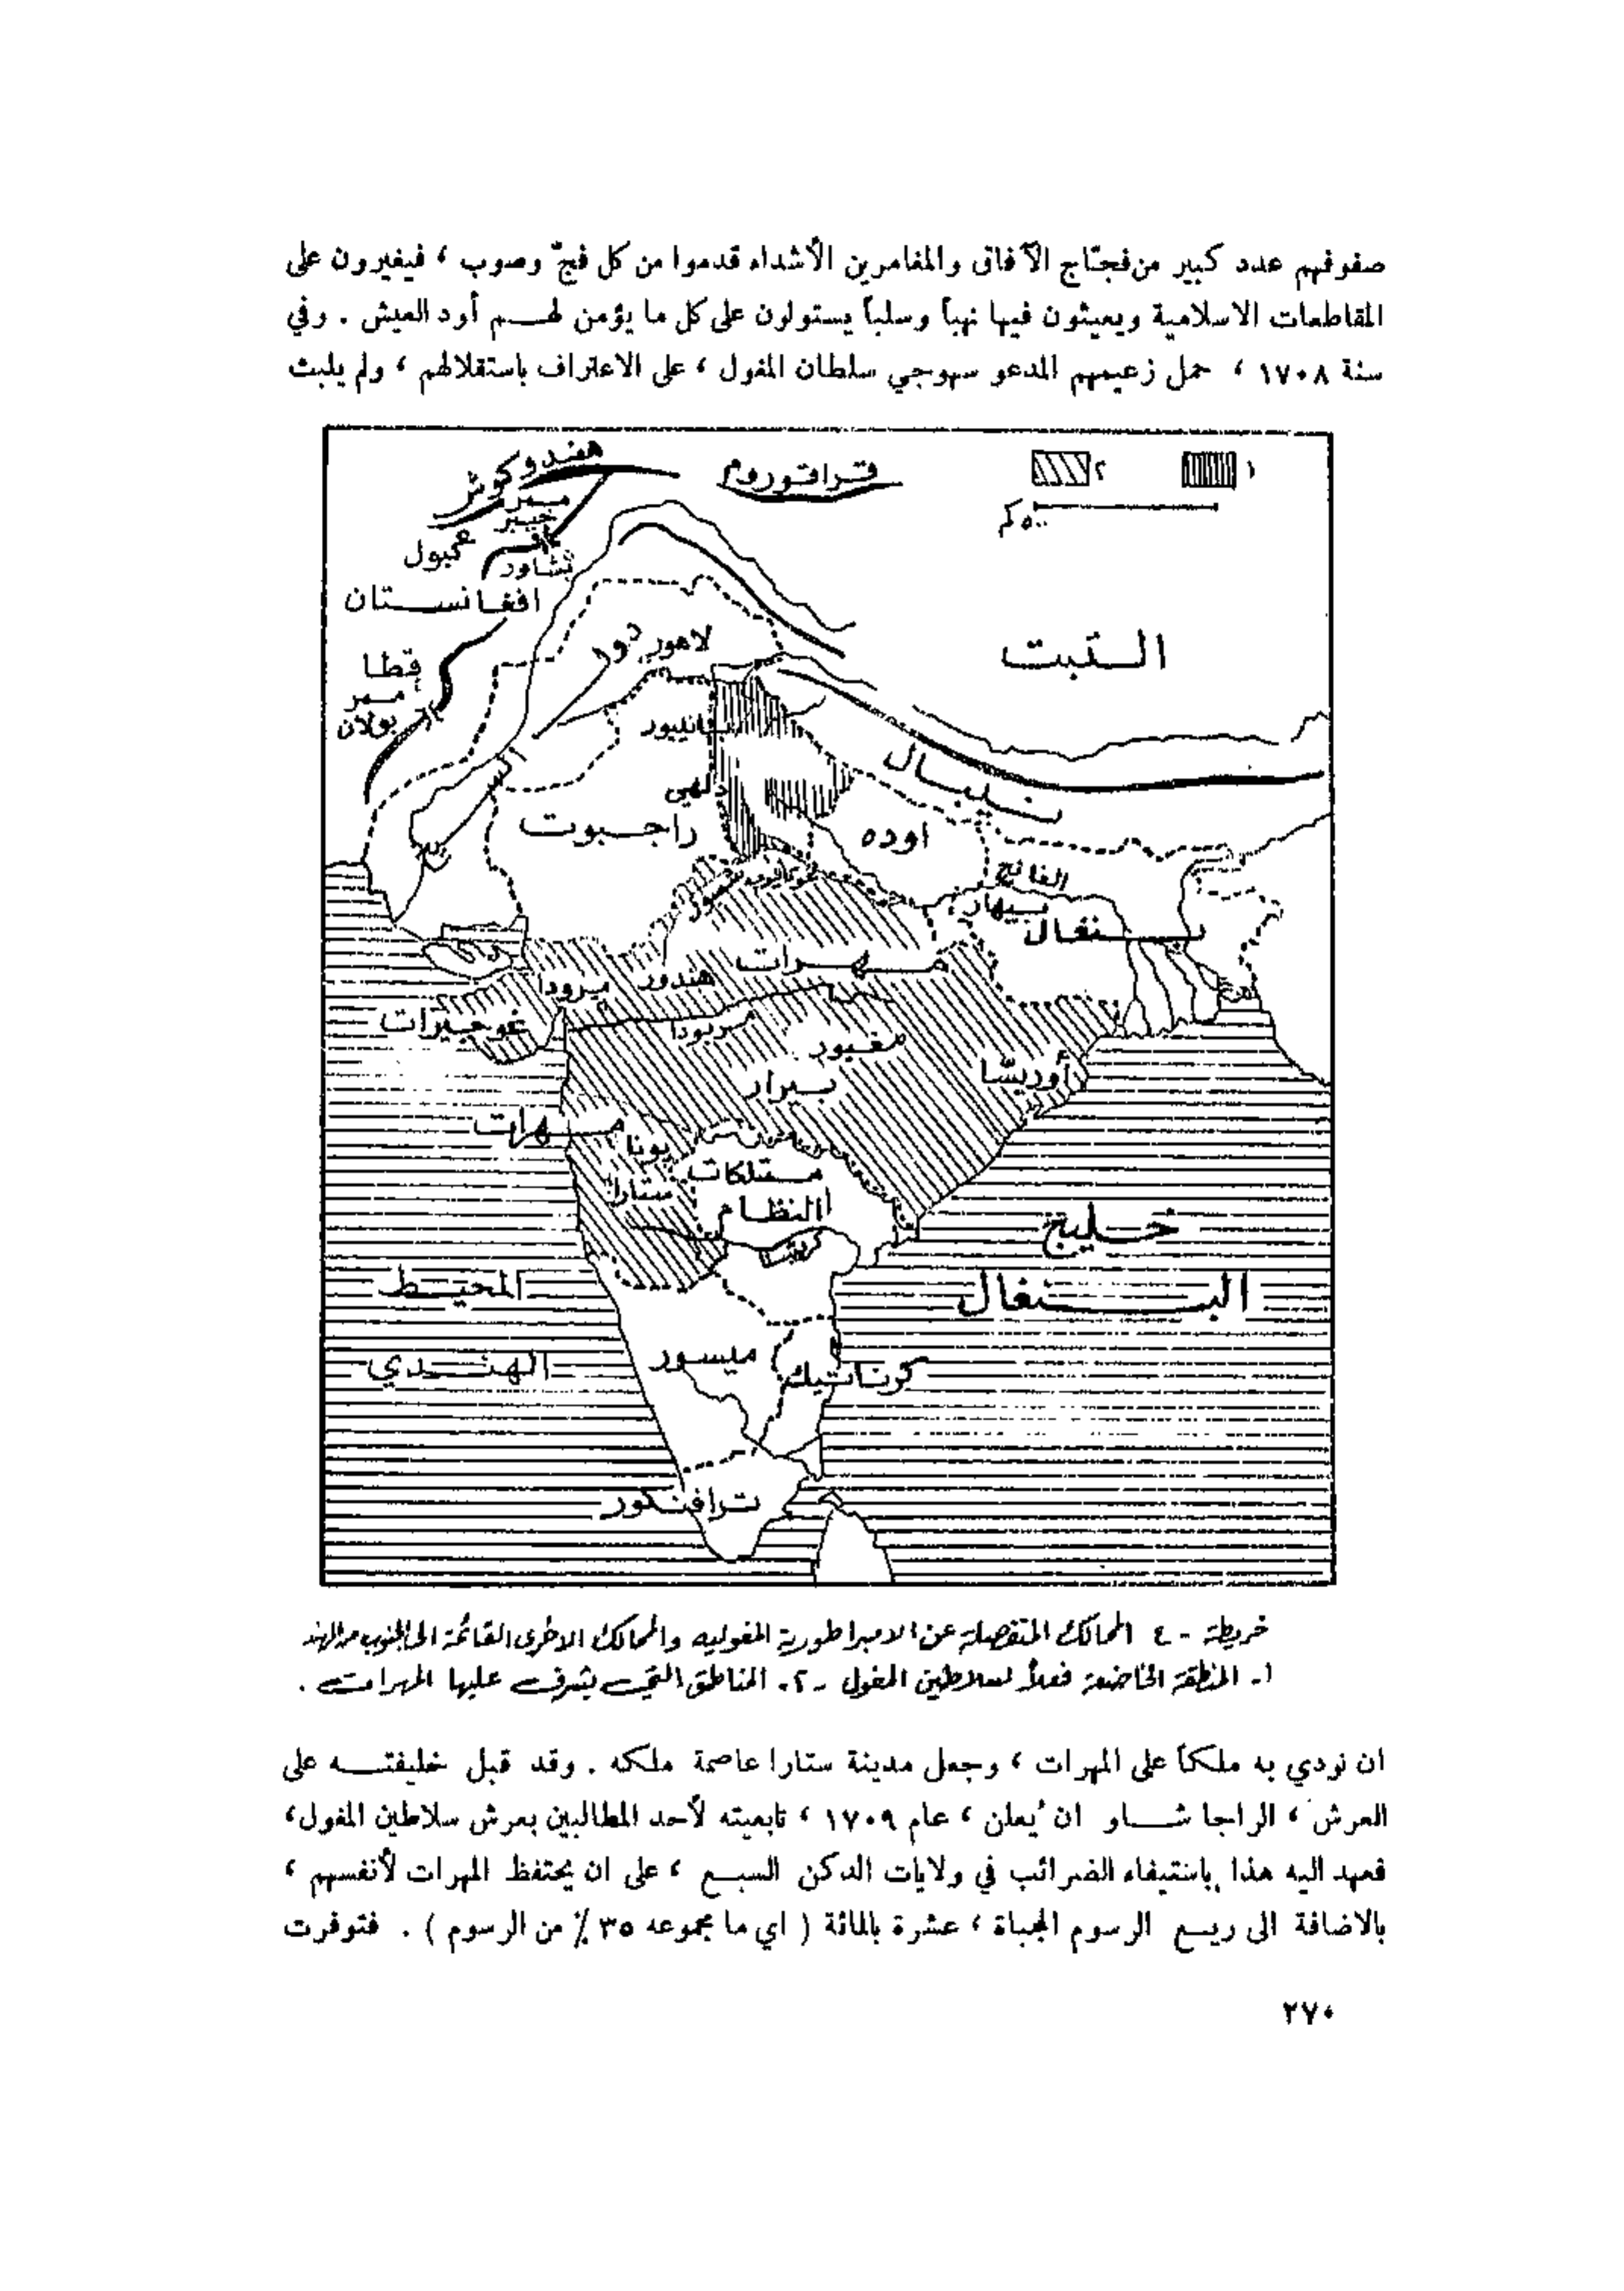 صفوفهم عدد كبير من فجّاج الآفاق والمغامرين الأشداء قدموا من كل فجّ وصوب ، فيغيرون على
المقاطعات الاسلامية ويعيثون فيها نهباً وسلباً يستولون على كل ما يؤمن لهم أود العيش . وفي
سنة ١٧٠٨ ، حمل زعيمهم المدعو سهوجي سلطان المغول ، على الاعتراف باستقلالهم ، ولم يلبث
هندوكوش
قراقوروم
٢
١
٥٠٠ كم
ممر
خيبر
بشاور
افغانستان
التبت
لاهور
قطا
ممر
بولان
نيبال
دلهي
راجبوت
اوده
الغانج
بيهار
بنغال
مهرات
هندور
غوجيرات
بيرار
أوريسّا
مهرات
بونا
ستارا
ممتلكات
النظام
خليج
البنغال
المحيط
الهندي
ميسور
كرناتيك
ترافنكور
خريطة - ٤ الممالك المنفصلة عن الامبراطورية المغوليه والممالك الاخرى القائمة الى الجنوب من الهند
١- المنطقة الخاضعة فعلاً لسلاطين المغول - ٢- المناطق التي يشرف عليها المهرات .
ان نودي به ملكاً على المهرات ، وجعل مدينة ستارا عاصمة ملكه . وقد قبل خليفته على
العرش ، الراجا شاو ان يُعلن ، عام ١٧٠٩ ، تابعيته لأحد المطالبين بعرش سلاطين المغول ،
فعهد اليه هذا باستيفاء الضرائب في ولايات الدكن السبع ، على ان يحتفظ المهرات لأنفسهم ،
بالاضافة الى ربع الرسوم المجباة ، عشرة بالمائة ( اي ما مجموعه ٣٥ ٪ من الرسوم ) . فتوفرت
٢٧٠